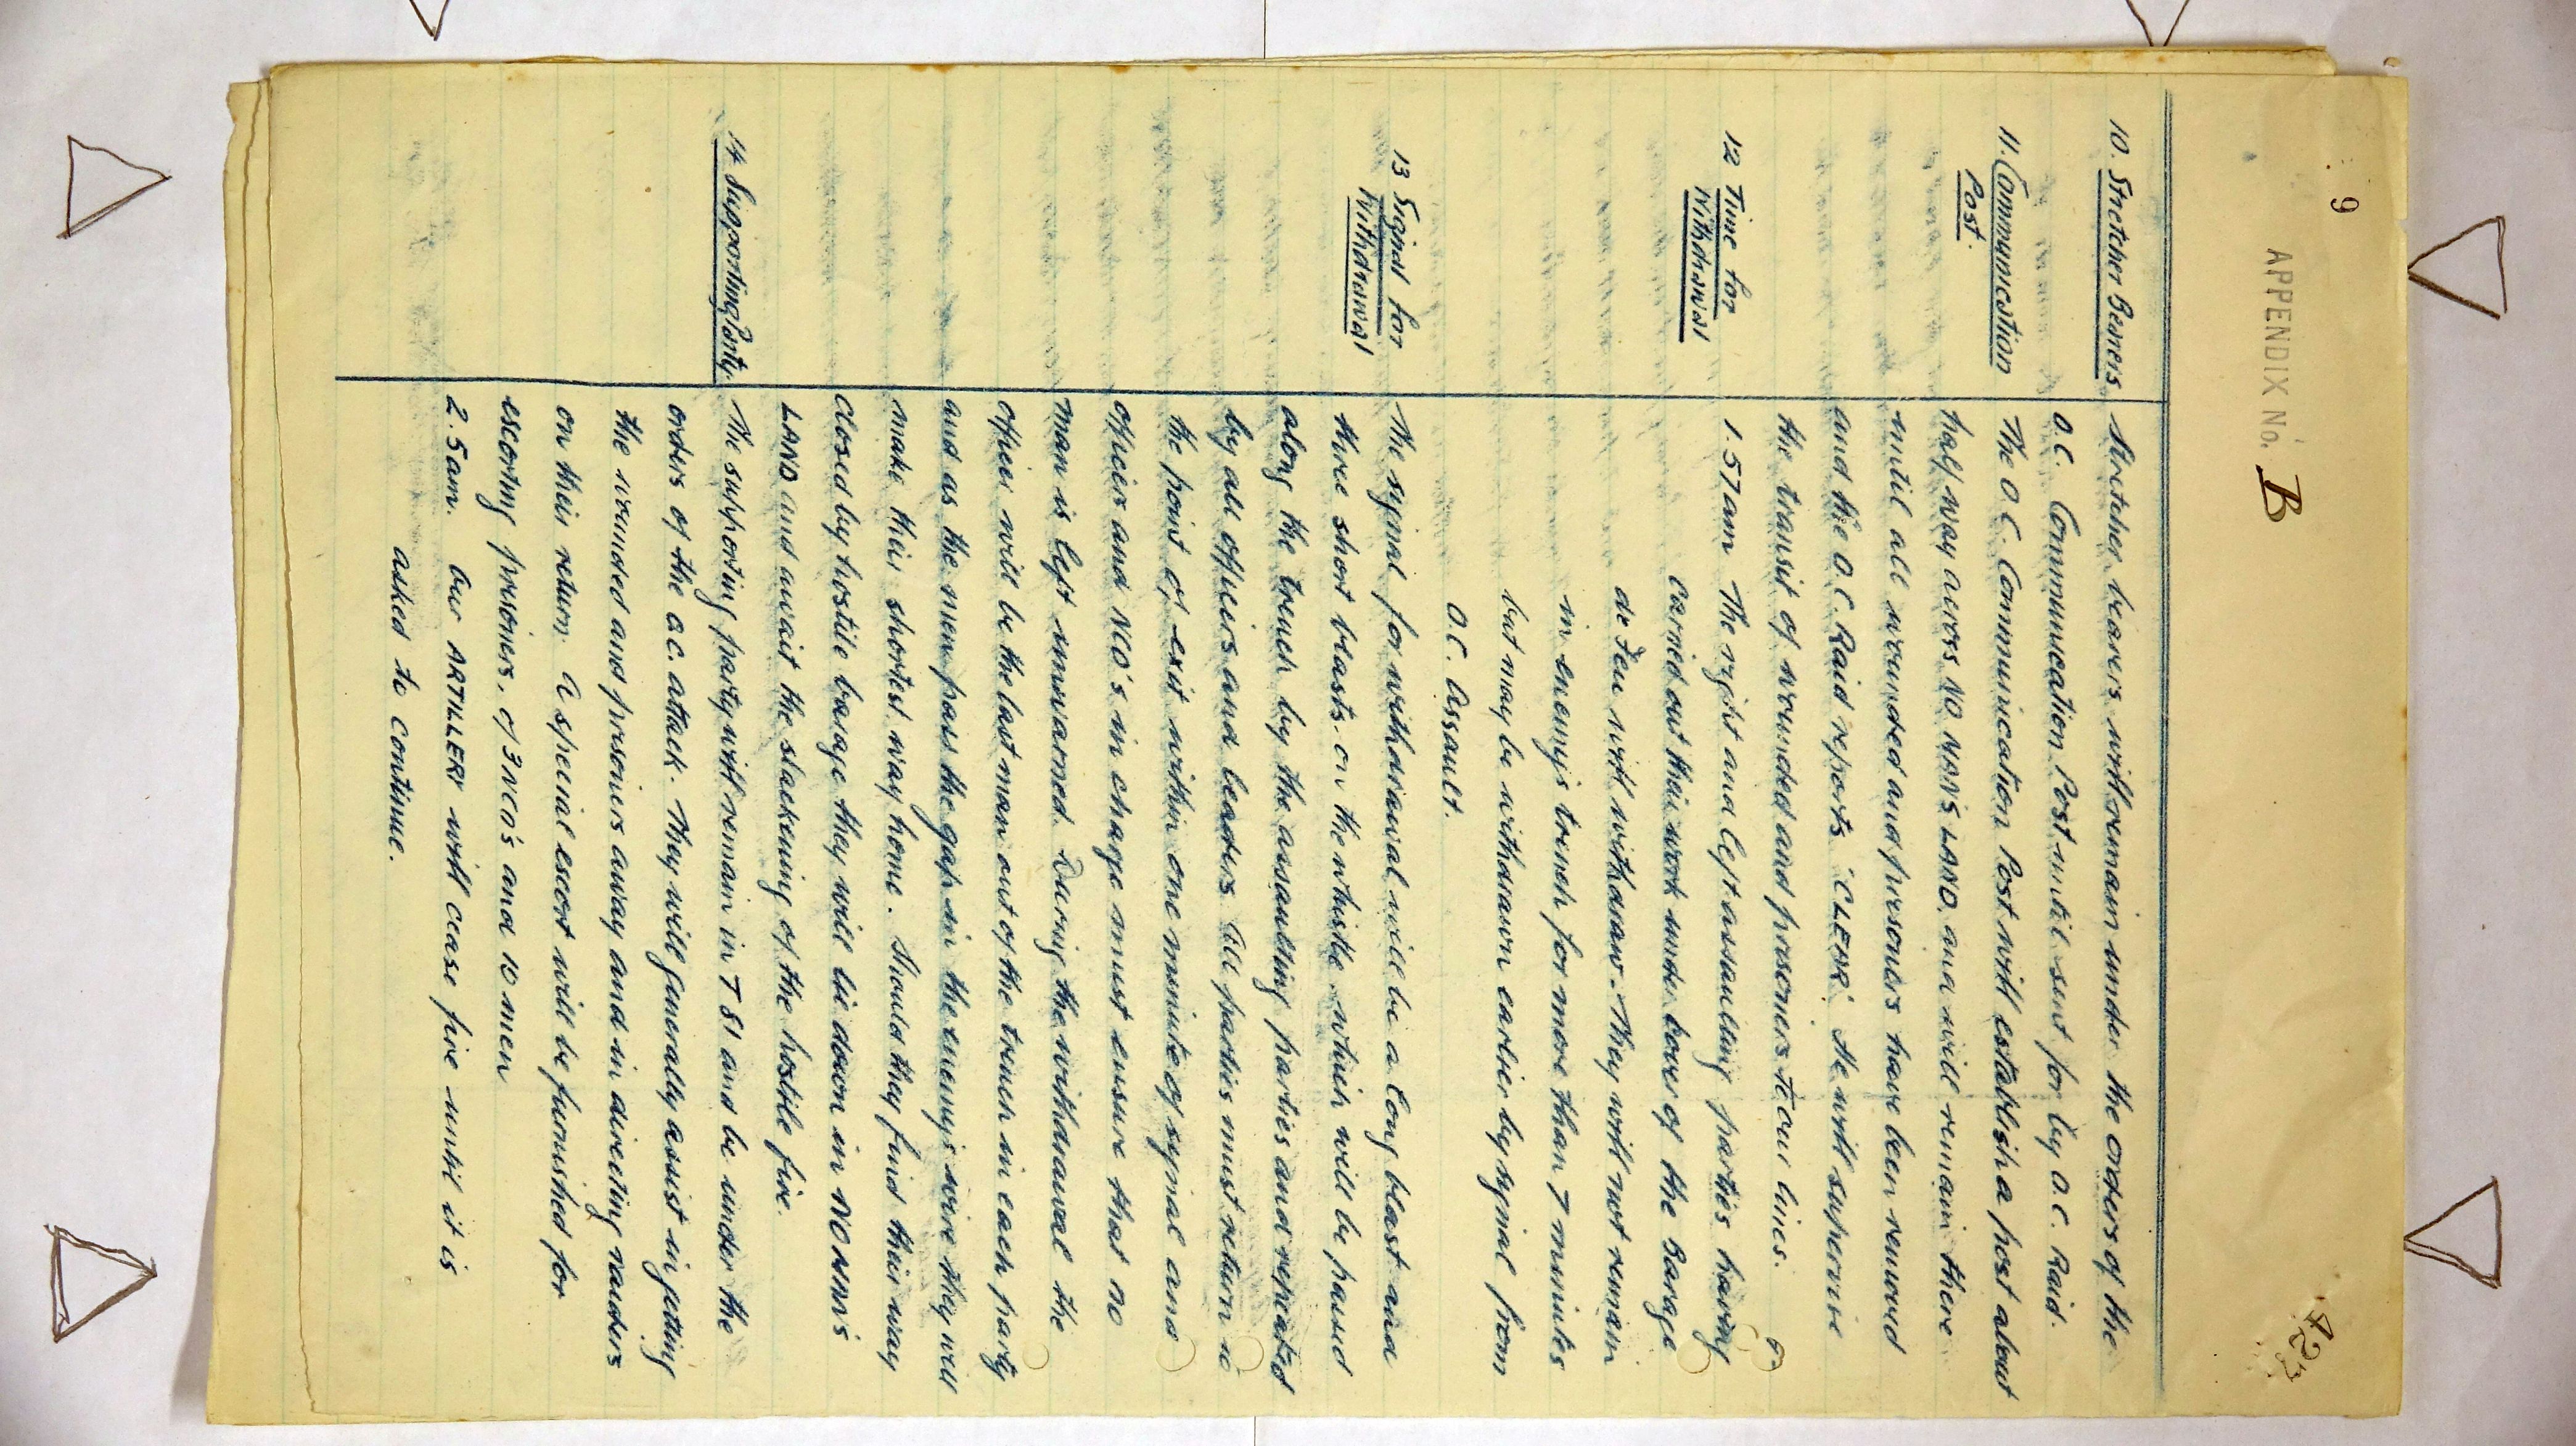 9
APPENDIX No. B
423
10. Stretcher Bearers
Stretcher bearers will remain under the orders of the
O.C. Communication Post until sent for by O.C. Raid.
11. Communication
Post.
The O.C. Communication Post will establish a post about
half way across NO MAN'S LAND and will remain there
until all wounded and prisoners have been removed
and the O.C. Raid reports "CLEAR". He will supervise
the transit of wounded and prisoners to our lines.
12 Time for
Withdrawal
1.57am The right and left assaulting parties having
carried out their work under cover of the Barage
de Feu will withdraw. They will not remain
in enemy's trench for more than 7 minutes
but may be withdrawn earlier by signal from
O.C. Assault.
13 Signal for
Withdrawal
The signal for withdrawal will be a long blast and
three short blasts on the whistle which will be passed
along the trench by the assaulting parties and repeated
by all officers and leaders. All parties must return to
the point of exit within one minute of signal and
officers and NCO's in charge must ensure that no
man is left unwarned. During the withdrawal the
officer will be the last man out of the trench in each party
and as the men pass the gap in the enemy's wire they will
make their shortest way home. Should they find their way
closed by hostile barage they will lie down in NO MAN'S
LAND and await the slackening of the hostile fire.
14 Supporting Party.
The supporting party will remain in T 81 and be under the
orders of the O.C. attack. They will generally assist in getting
the wounded and prisoners away and in directing raiders
on their return. A special escort will be furnished for
escorting prisoners, of 3 NCO's and 10 men
2.5am. Our ARTILLERY will cease fire until it is
asked to continue.